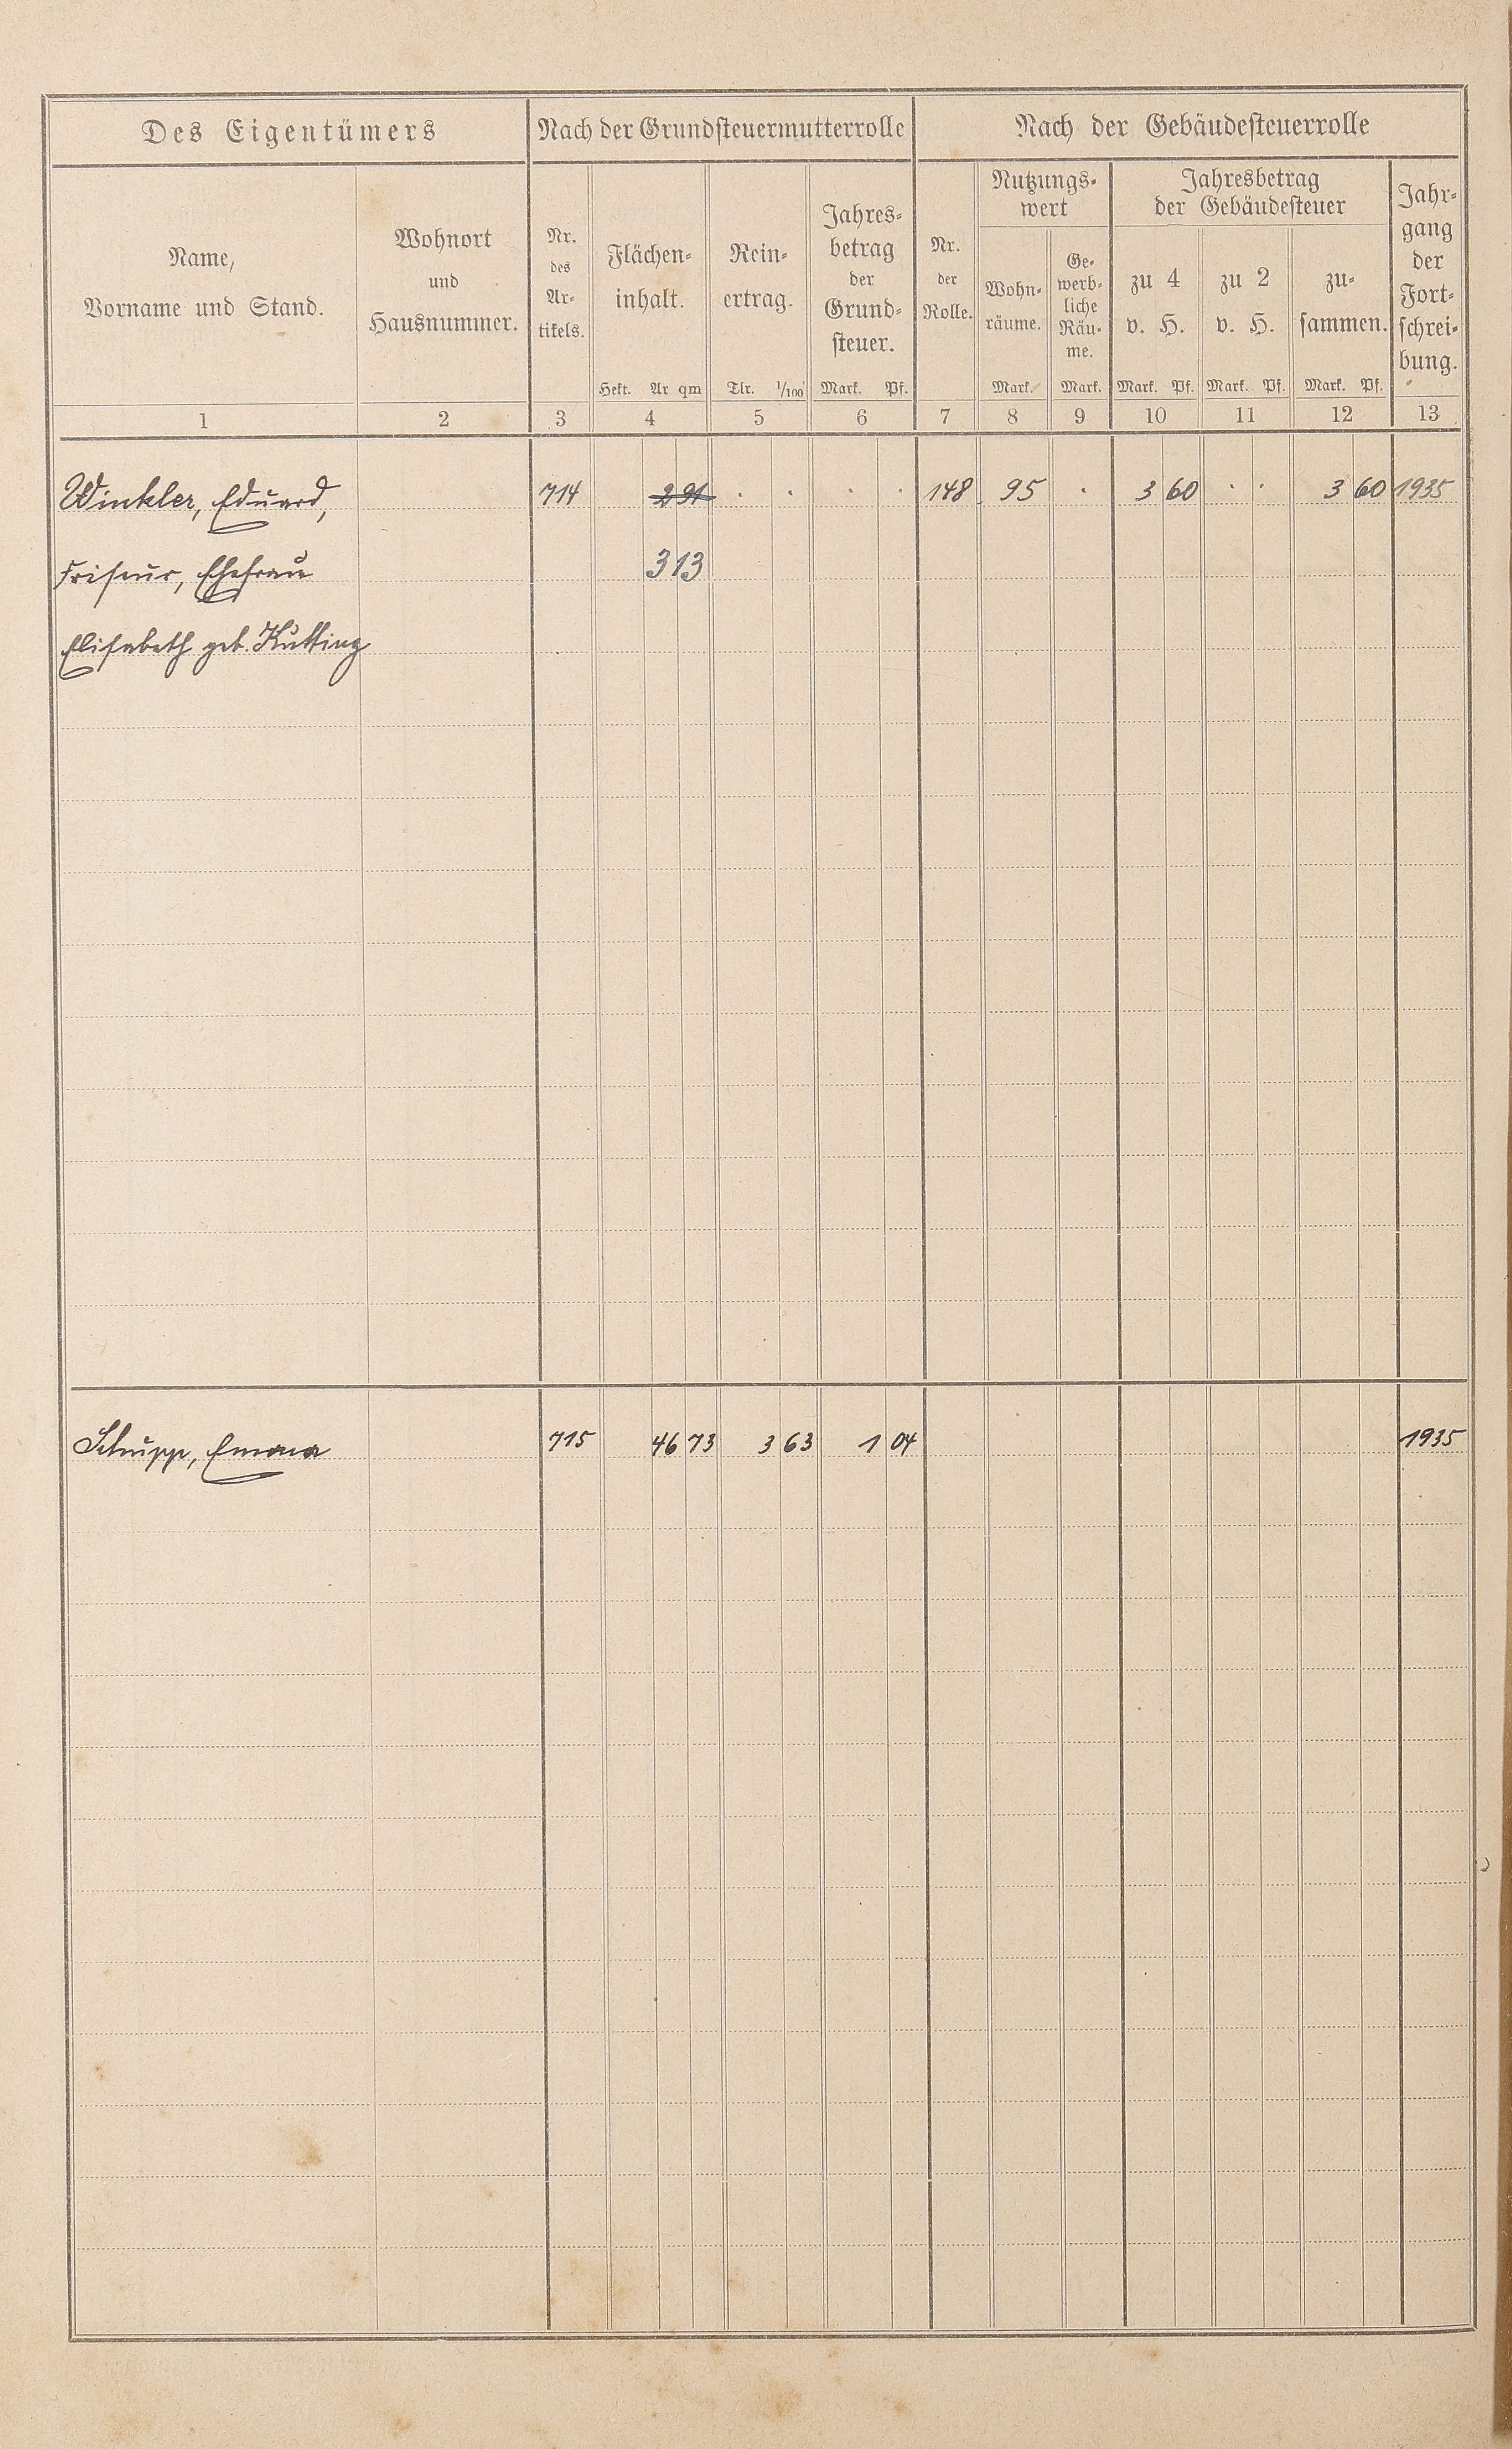 Des Eigentümers Nach der Grundsteuermutterrolle Nach der Gebäudesteuerrolle
Name,
Vorname und Stand.
Wohnort
und
Hausnummer.
Nr.
des
Ar-
tikels.
Flächen-
inhalt.
Hekt. Ar qm
Rein-
ertrag.
Tlr. 1/100
Jahres-
betrag
der
Grund-
steuer.
Mark. Pf.
Nr.
der
Rolle.
Nutzungs-
wert
Wohn-
räume.
Mark.
Ge-
werb-
liche
Räu-
me.
Mark.
Jahresbetrag
der Gebäudesteuer
zu 4
v. H.
Mark. Pf.
zu 2
v. H.
Mark. Pf.
zu-
sammen.
Mark. Pf.
Jahr-
gang
der
Fort-
schrei-
bung.
1 2 3 4 5 6 7 8 9 10 11 12 13
Winkler, Eduard, 714 2 91 . . . . 148 95 . 3 60 . . 3 60 1935
Friseur, Ehefrau 3 13
Elisabeth geb. Kutting
Schupp, Emma 715 46 73 3 63 1 04 1935